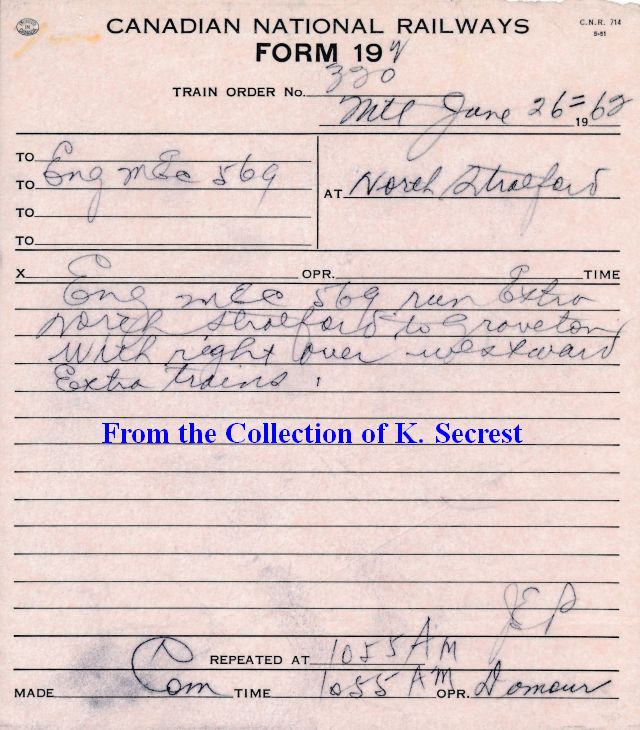 CANADIAN NATIONAL RAILWAYS
C.N.R. 714
5-51
FORM 19 Y
TRAIN ORDER No. 320
Mtl June 26 = 1962
TO Eng MEC 569
TO
TO
TO
AT North Stratford
X OPR. TIME
Eng MEC 569 run Extra
North Stratford to Groveton
with right over westward
Extra trains
From the Collection of K. Secrest
JEP
REPEATED AT 1055 AM
MADE Com TIME 1055 AM OPR.